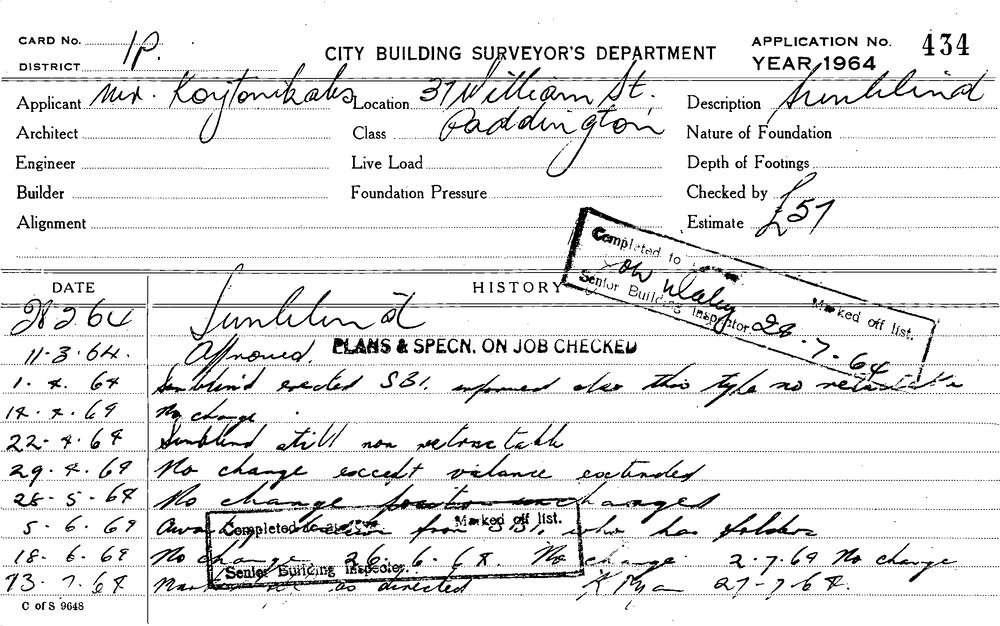 CARD No. 1P.
CITY BUILDING SURVEYOR'S DEPARTMENT
APPLICATION No. 434
DISTRICT
YEAR 1964
Applicant Mr. Location 37 William St. Description Sunblind
Architect Class Paddington Nature of Foundation
Engineer Live Load Depth of Footings
Builder Foundation Pressure Checked by
Alignment Estimate £57
Completed to
Senior Building Inspector 28.7.64
Marked off list.
DATE HISTORY
28 2 64 Sunblind
11-3-64. Approved. PLANS & SPECN. ON JOB CHECKED
1. 4. 64 Sunblind erected SBI. informed also this type no
14. 4. 64 No change.
22-4.64 Sunblind still non retractable
29.4.64 No change except valance extended
28-5-64 No change
5-6.64 from SBI, who has folder
Completed Marked off list.
Senior Building Inspector.
18.6.64 No change 26.6.64. No change 2.7.64 No change
13.7.64 as directed 27-7-64.
C of S 9648